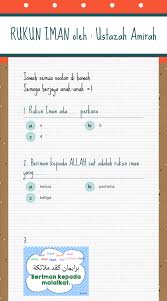 RUKUN IMAN oleh : Ustazah Amirah
Jawab semua soalan di bawah
Semoga berjaya anak-anak =)
1. Rukun Iman ada .... perkara
A
B b
C d
2. Beriman kepada ALLAH swt adalah rukun iman
yang ....
A kedua
B pertama
C ketiga
3.
برايمان كڤد ملائكة
Beriman kepada
malaikat.